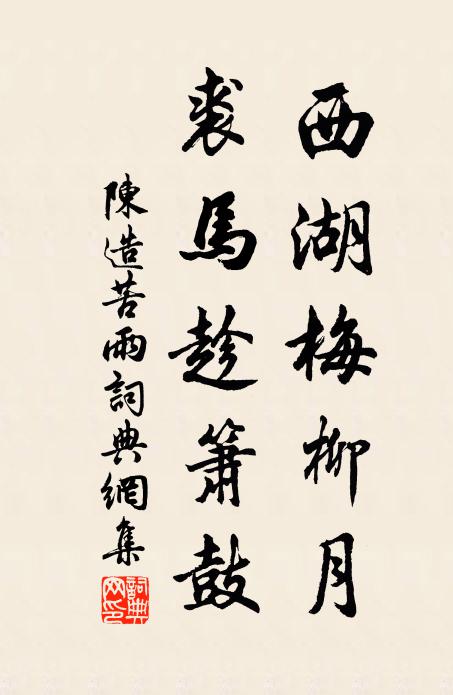 西湖梅柳月
裘馬趁簫鼓
陳造苦雨詞典網集
詞典网印